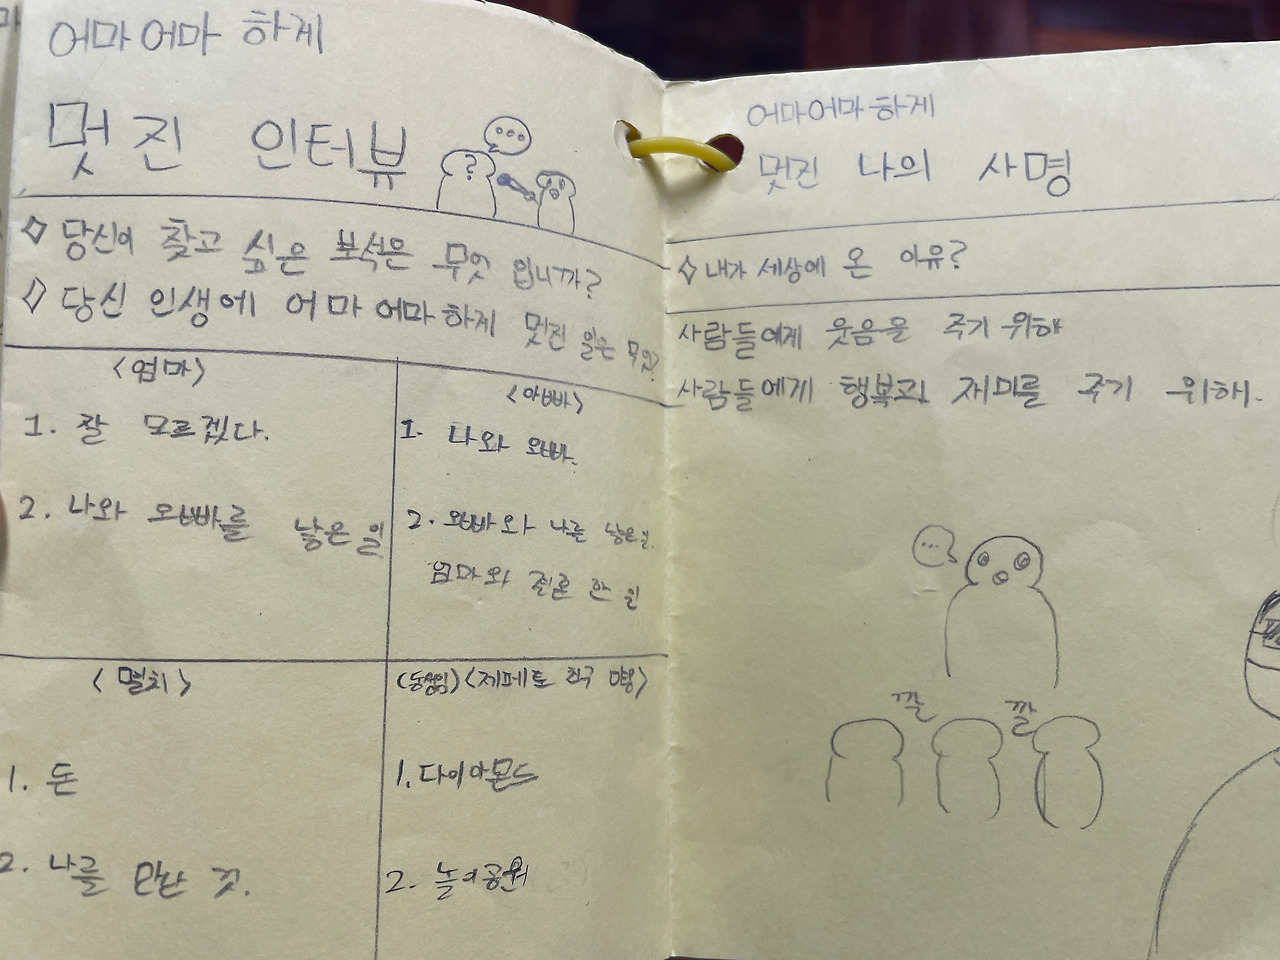 어마어마 하게
멋진 인터뷰
◇ 당신이 찾고 싶은 보석은 무엇 입니까?
◇ 당신 인생에 어마어마하게 멋진 일은 무엇?
<엄마>
1. 잘 모르겠다.
2. 나와 오빠를 낳은 일
<아빠>
1. 나와 오빠.
2. 오빠와 나를 낳은 일.
엄마와 결혼 한 일
<멸치>
1. 돈
2. 나를 만난 것.
<제페토 친구
1. 다이아몬드
2. 놀이공원
어마어마하게
멋진 나의 사명
◇ 내가 세상에 온 이유?
사람들에게 웃음을 주기 위해
사람들에게 행복과 재미를 주기 위해.
...
깔 깔